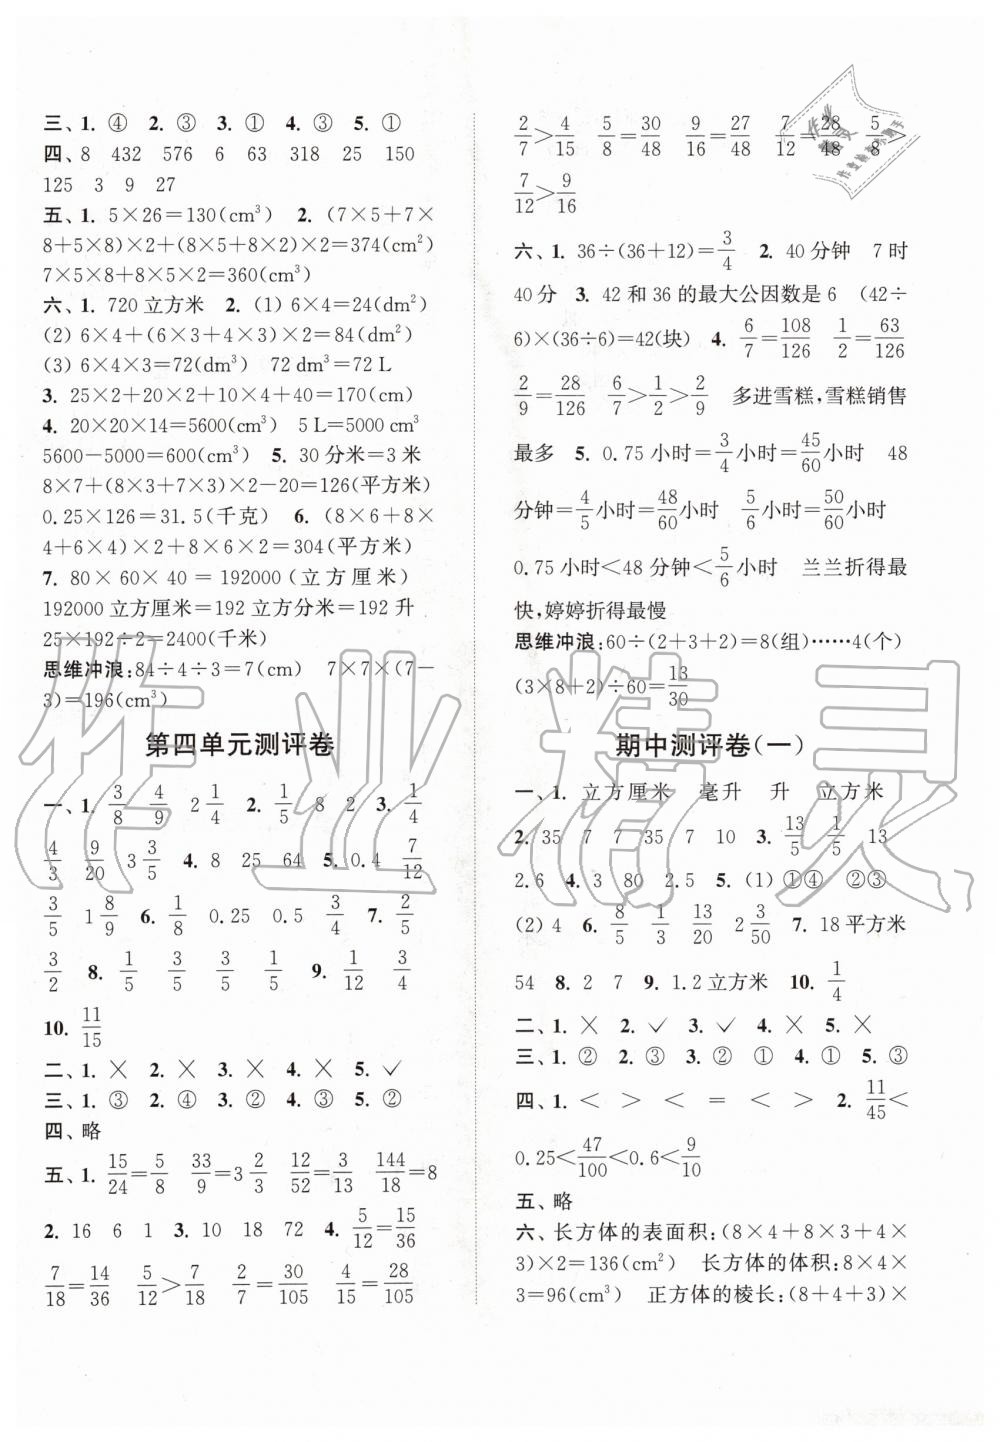 三、1. ④ 2. ③ 3. ① 4. ③ 5. ①
四、8 432 576 6 63 318 25 150
125 3 9 27
五、1. 5×26=130(cm³) 2. (7×5+7×
8+5×8)×2+(8×5+8×5)×2=374(cm²)
7×5×8+8×5×2=360(cm³)
六、1. 720立方米 2. (1) 6×4=24(dm²)
(2) 6×4+(6×3+4×3)×2=84(dm²)
(3) 6×4×3=72(dm³) 72 dm³=72 L
3. 25×2+20×2+10×4+40=170(cm)
4. 20×20×14=5600(cm³) 5 L=5000 cm³
5600-5000=600(cm³) 5. 30分米=3米
8×7+(8×3+7×3)×2-20=126(平方米)
0.25×126=31.5(千克) 6. (8×6+8×
4+6×4)×2+8×6×2=304(平方米)
7. 80×60×40=192000(立方厘米)
192000立方厘米=192立方分米=192升
25×192÷2=2400(千米)
思维冲浪:84÷4÷3=7(cm) 7×7×(7-
3)=196(cm³)
第四单元测评卷
一、1. 3/8 4/9 2 1/4 2. 1/5 8 2 3. 1/4
4/3 9/20 3 3/5 4. 8 25 64 5. 0.4 7/12
3/5 1 8/9 6. 1/8 0.25 0.5 3/4 7. 2/5
3/2 8. 1/5 3/5 3/5 1/5 9. 1/12 3/4
10. 11/15
二、1. × 2. × 3. × 4. × 5. ✓
三、1. ③ 2. ④ 3. ② 4. ③ 5. ②
四、略
五、1. 15/24=5/8 33/9=3 2/3 12/52=3/13 144/18=8
2. 16 6 1 3. 10 18 72 4. 5/12=15/36
7/18=14/36 5/12>7/18 2/7=30/105 4/15=28/105
2/7>4/15 5/8=30/48 9/16=27/48 7/12=28/48 5/8>
7/12>9/16
六、1. 36÷(36+12)=3/4 2. 40分钟 7时
40分 3. 42和36的最大公因数是6 (42÷
6)×(36÷6)=42(块) 4. 6/7=108/126 1/2=63/126
2/9=28/126 6/7>1/2>2/9 多进雪糕,雪糕销售
最多 5. 0.75小时=3/4小时=45/60小时 48
分钟=4/5小时=48/60小时 5/6小时=50/60小时
0.75小时<48分钟<5/6小时 兰兰折得最
快,婷婷折得最慢
思维冲浪:60÷(2+3+2)=8(组)……4(个)
(3×8+2)÷60=13/30
期中测评卷(一)
一、1. 立方厘米 毫升 升 立方米
2. 35 7 7 35 7 10 3. 13/5 1/5 13
2.6 4. 3 80 2.5 5. (1) ①④ ②③
(2) 4 6. 8/5 1/3 13/20 2 3/50 7. 18平方米
54 8. 2 7 9. 1.2立方米 10. 1/4
二、1. × 2. ✓ 3. ✓ 4. × 5. ×
三、1. ② 2. ③ 3. ② ① 4. ① 5. ③
四、1. < > < = < > 2. 11/45<
0.25<47/100<0.6<9/10
五、略
六、长方体的表面积:(8×4+8×3+4×
3)×2=136(cm²) 长方体的体积:8×4×
3=96(cm³) 正方体的棱长:(8+4+3)×
作业精灵